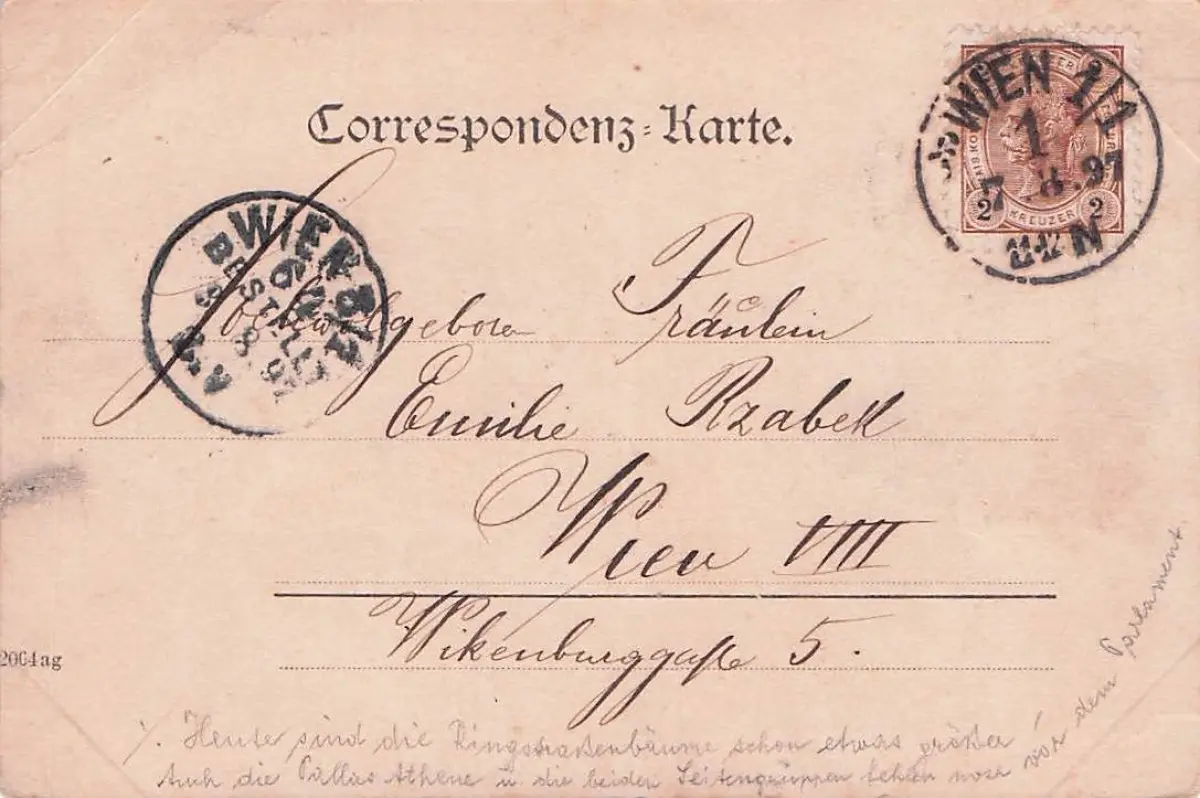 Correspondenz-Karte.
WIEN 1/1
1
7 . 8 . 97
11-12 N
2 KREUZER 2
WIEN 8/1
BESTELLT
Hochwolgeboren Fräulein
Emilie Rzabek
Wien VIII
Wikenburggasse 5.
2064ag
1. Heute sind die Ringstraßenbäume schon etwas größer!
Auch die Pallas Athene u. die beiden Seitengruppen fehlen noch vor dem Parlament.